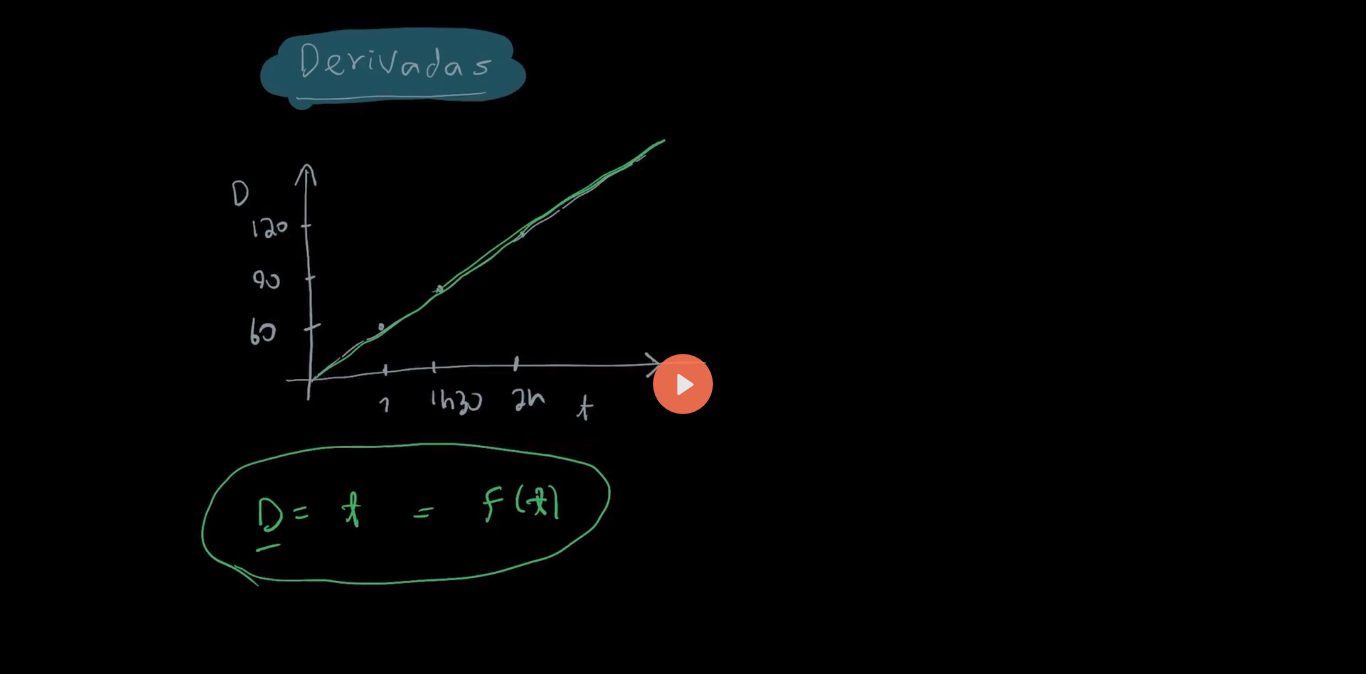 Derivadas
D
120
90
60
1 1h30 2h t
D = t = f(t)